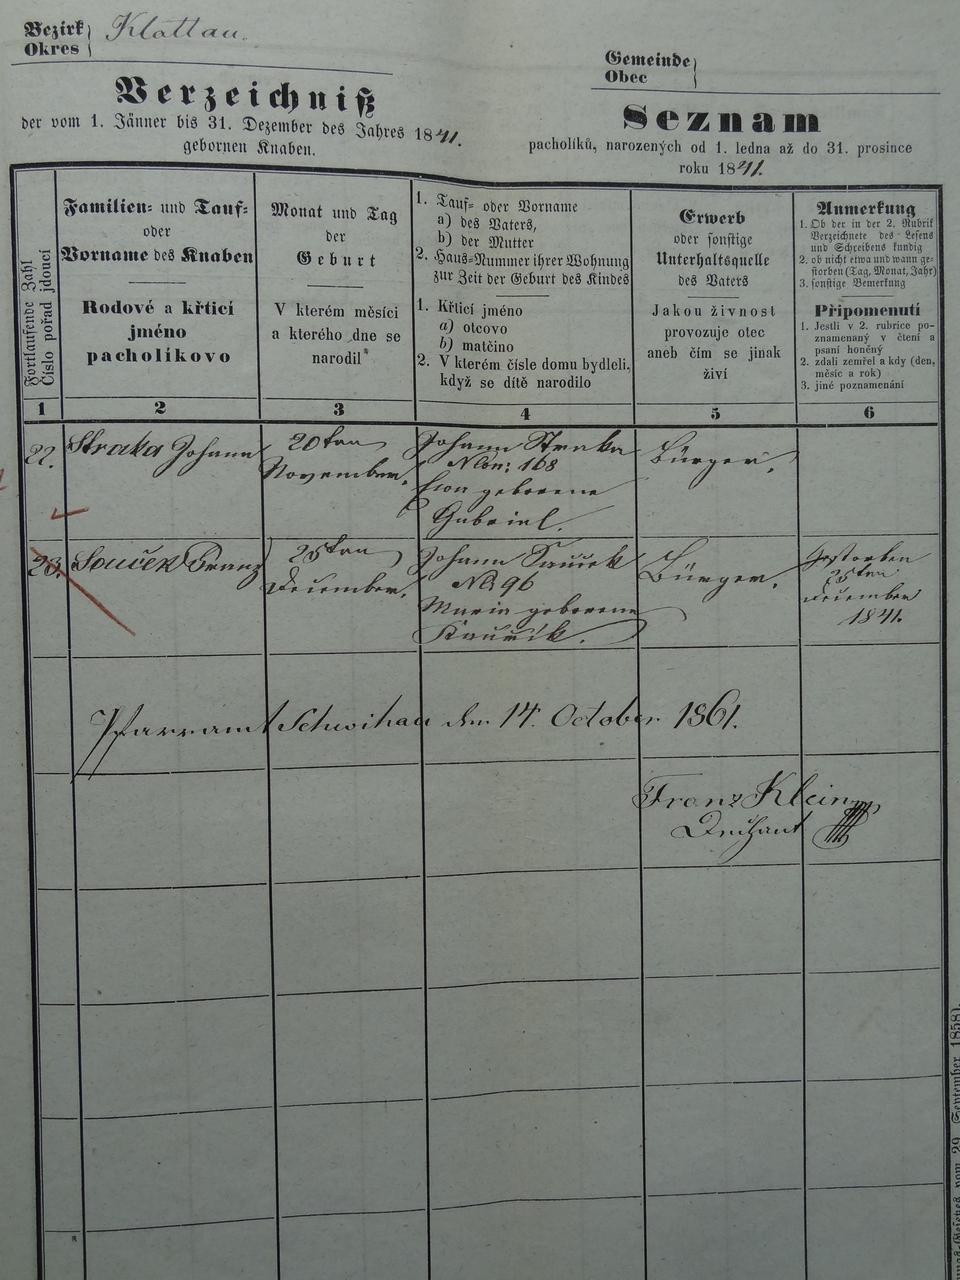 Bezirk
Okres
Klattau.
Gemeinde
Obec
Verzeichniß
der vom 1. Jänner bis 31. Dezember des Jahres 1841.
gebornen Knaben.
Seznam
pacholíků, narozených od 1. ledna až do 31. prosince
roku 1841.
Fortlaufende Zahl
Číslo pořad jdoucí
Familien- und Tauf-
oder
Vorname des Knaben
Rodové a křticí
jméno
pacholíkovo
Monat und Tag
der
Geburt
V kterém měsíci
a kterého dne se
narodil
1. Tauf- oder Vorname
a) des Vaters,
b) der Mutter
2. Haus-Nummer ihrer Wohnung
zur Zeit der Geburt des Kindes
1. Křticí jméno
a) otcovo
b) matčino
2. V kterém čísle domu bydleli,
když se dítě narodilo
Erwerb
oder sonstige
Unterhaltsquelle
des Vaters
Jakou živnost
provozuje otec
aneb čím se jinak
živí
Anmerkung
1. Ob der in der 2. Rubrik
Verzeichnete des Lesens
und Schreibens kundig
2. ob nicht etwa und wann ge-
storben (Tag, Monat, Jahr)
3. sonstige Bemerkung
Připomenutí
1. Jestli v 2. rubrice po-
znamenaný v čtení a
psaní honěný
2. zdali zemřel a kdy (den,
měsíc a rok)
3. jiné poznamenání
1 2 3 4 5 6
22. Straka Johann
20ten
November.
Johann Straka
NCon: 168
geborene
Gabriel.
Bürger.
23. Souček Franz
25ten
December.
Johann Sauček
NC 96
Maria geborene
Bürger.
Gestorben
25ten
December
1841.
Pfarramt Schwihau den 14. October 1861.
Franz Klein
Dechant
vom 29. September 1858).